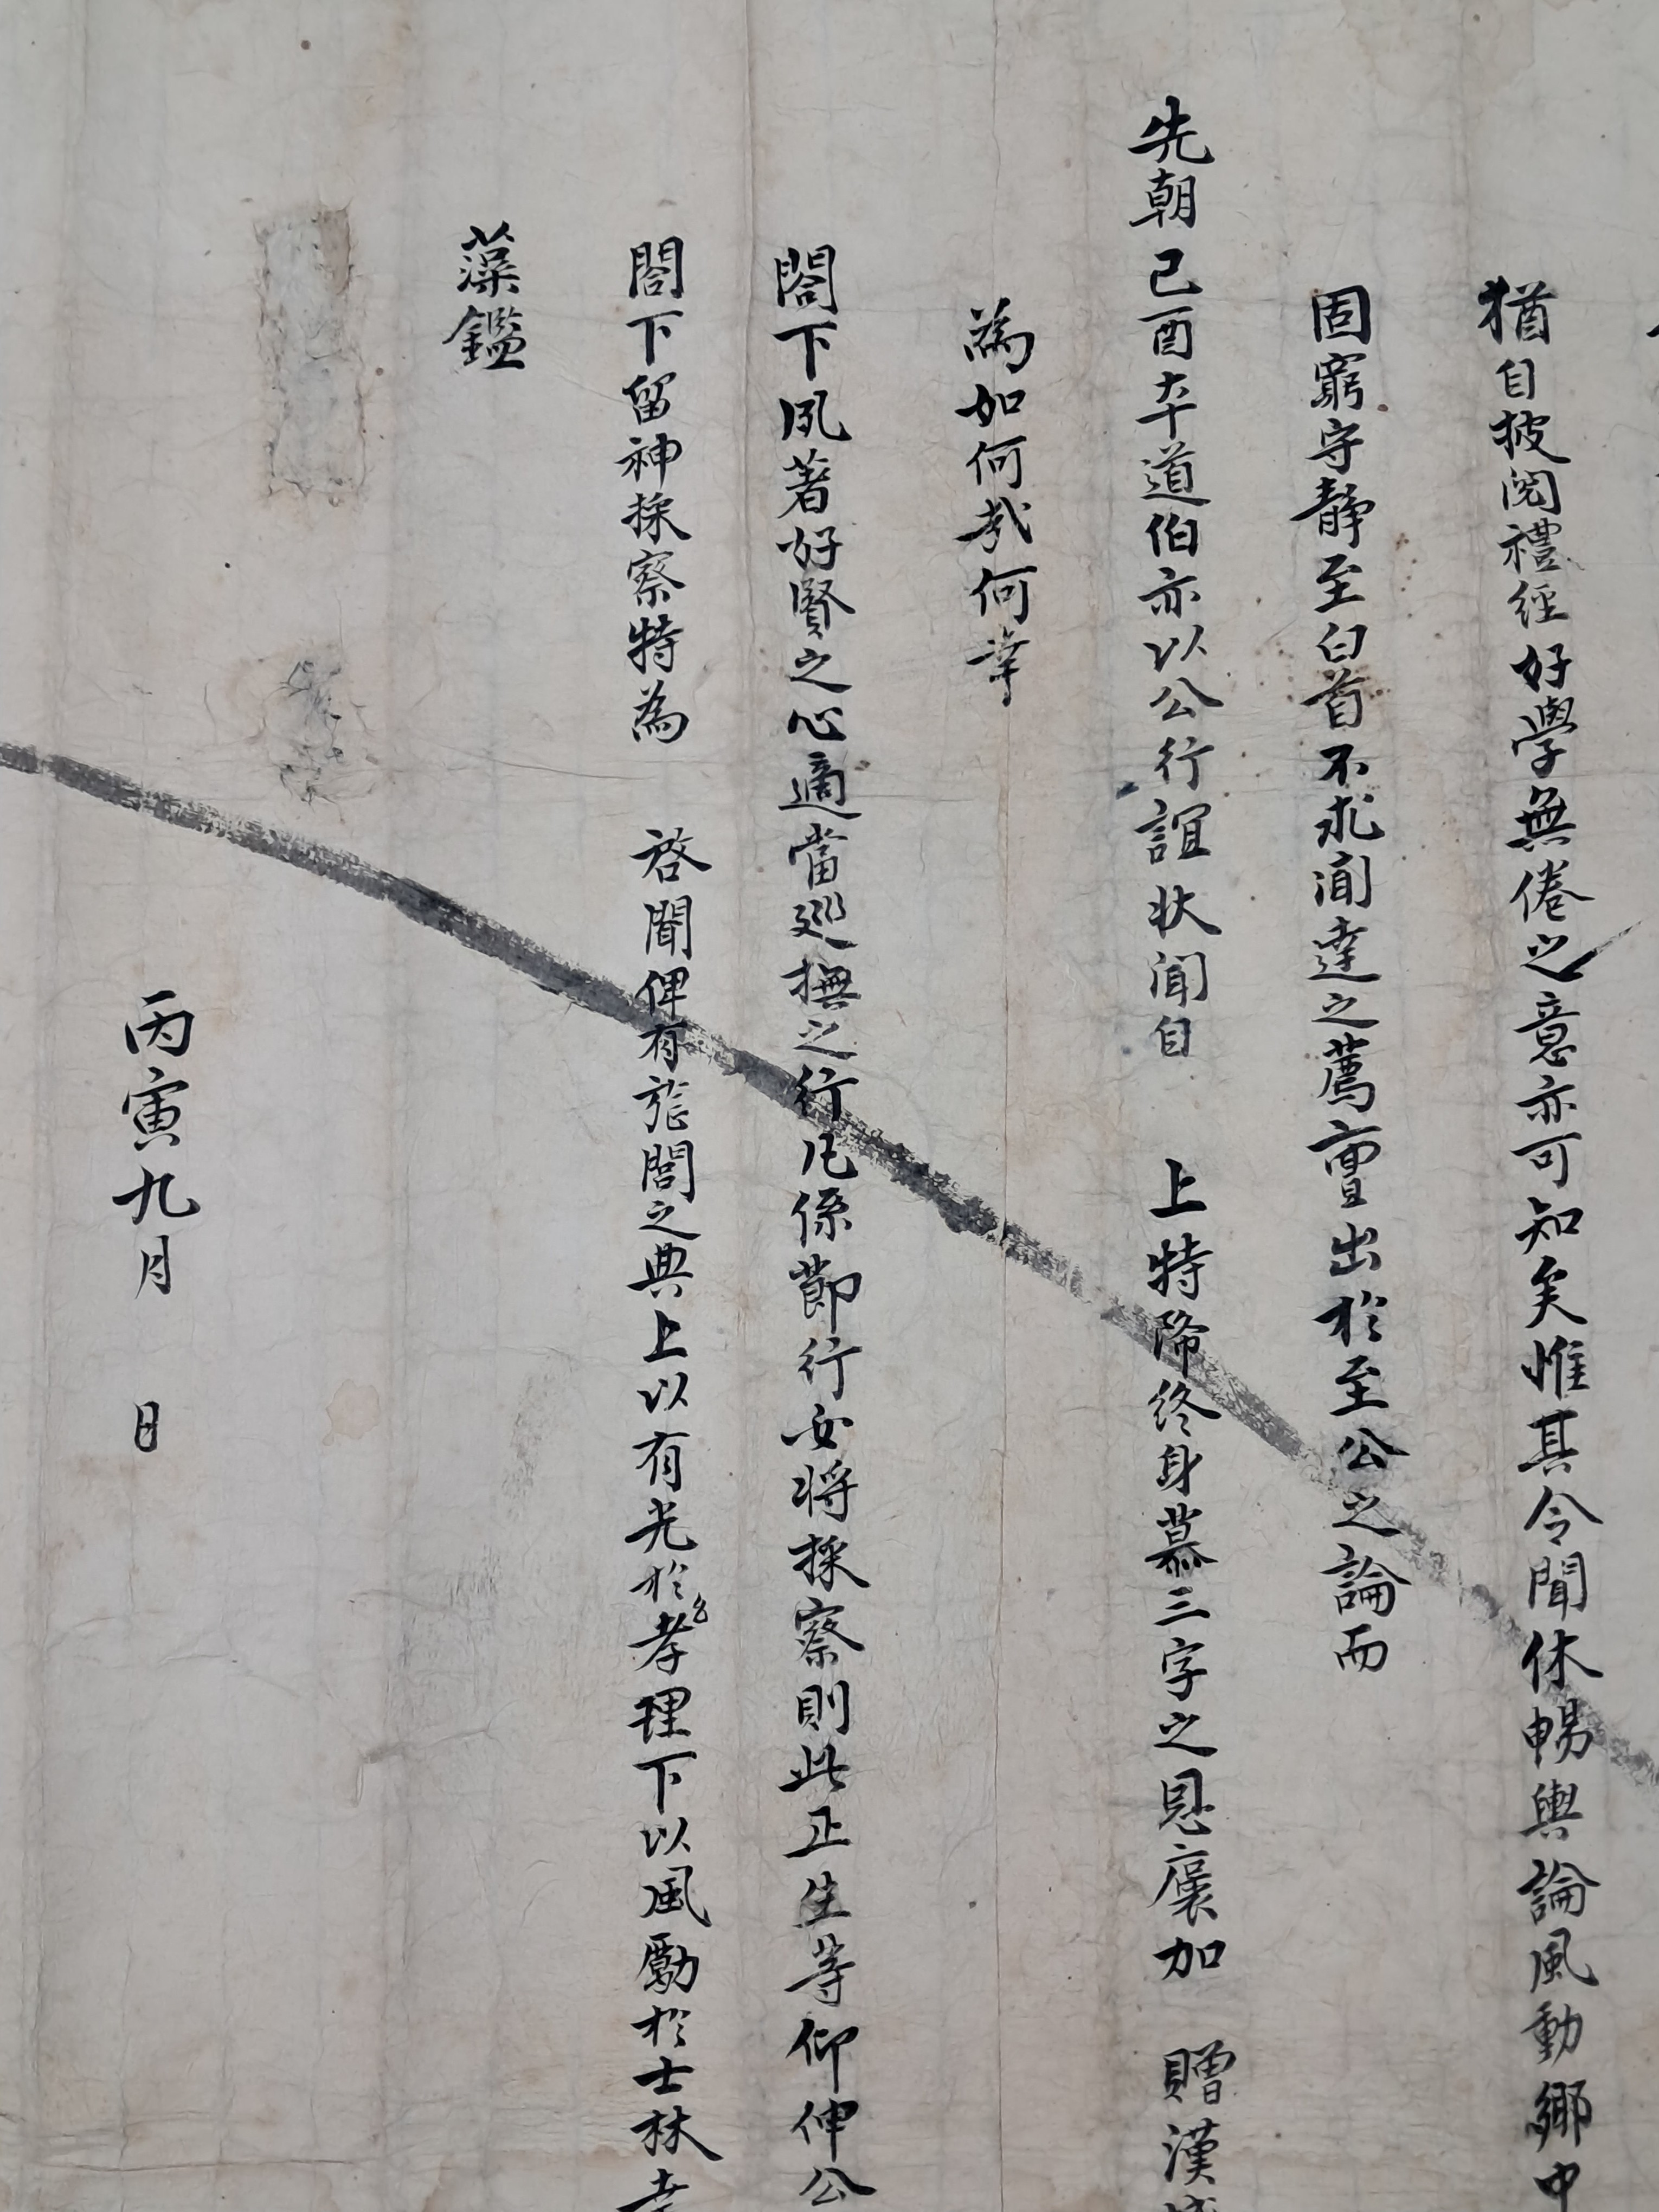 猶自披閱禮經好學無倦之意亦可知矣惟其令聞休暢輿論風動鄉中
固窮守静至白首不求聞達之薦亶出於至公之論而
先朝己酉卒道伯亦以公行誼狀聞自 上特降終身慕三字之恩褒加 贈漢
為如何哉何幸
閤下夙著好賢之心適當巡撫之行凡係節行必將採察則此正生等仰伸公
閤下留神採察特為 啓聞俾有旌閭之典上以有光於孝理下以風勵於士林幸
藻鑑
丙寅九月 日